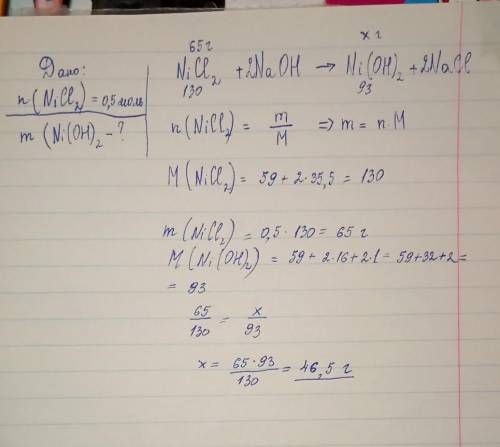 65г
x г
Дано:
n(NiCl₂) = 0,5 моль
m(Ni(OH)₂ - ?
NiCl₂ + 2NaOH → Ni(OH)₂ + 2NaCl
130
93
n(NiCl₂) = m/M => m = n·M
M(NiCl₂) = 59 + 2·35,5 = 130
m(NiCl₂) = 0,5 · 130 = 65 г
M(Ni(OH)₂) = 59 + 2·16 + 2·1 = 59+32+2 =
= 93
65/130 = x/93
x = 65·93/130 = 46,5 г